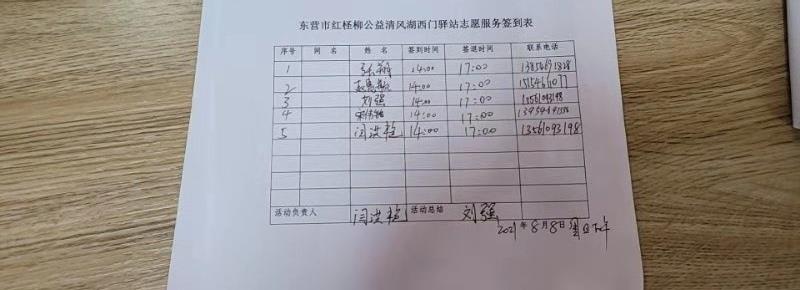 东营市红柽柳公益清风湖西门驿站志愿服务签到表
序号 网 名 姓 名 签到时间 签退时间 联系电话
1 14:00 17:00
2 14:00 17:00
3 刘强 14:00 17:00
4 14:00 17:00
5 闫洪艳 14:00 17:00 13561093198
活动负责人 闫洪艳 活动总结 刘强
2021年8月8日 星期日下午